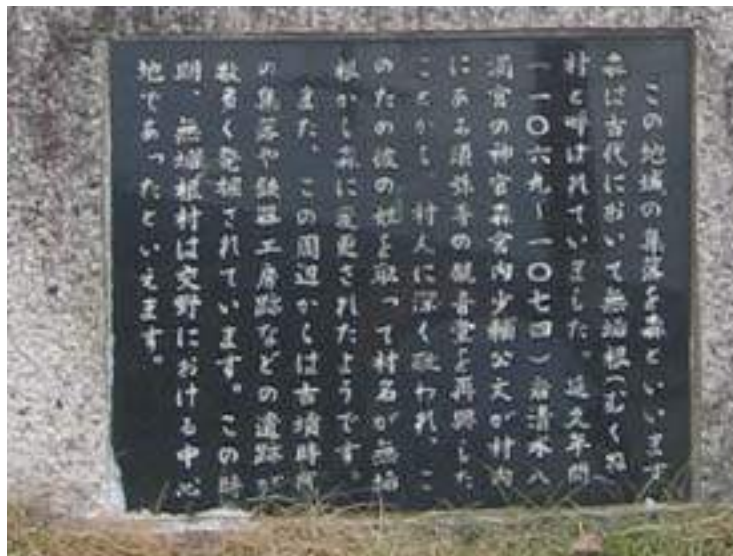 この地域の集落を森といいます
森は古代において無垢根(むくね)
村と呼ばれていました。延久年間
一(一〇六九〜一〇七四)岩清水八
満宮の神官森宮内少輔公文が村内
にある須弥寺の観音堂を再興した
ことから 村人に深く敬われ、こ
のため彼の姓を取って村名が無垢
根から森に変更されたようです。
また、この周辺からは古墳時代
の集落や鉄器工房跡などの遺跡が
数多く発掘されています。この時
期、無垢根村は交野における中心
地であったといえます。